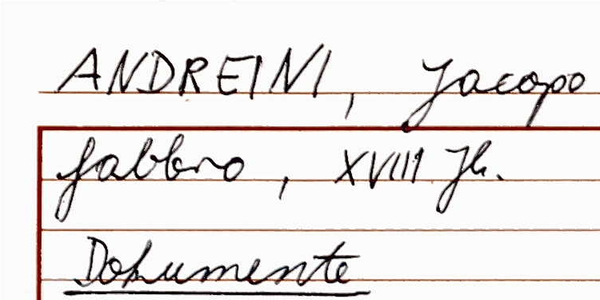 ANDREINI, Jacopo
fabbro, XVIII Jh.
Dokumente